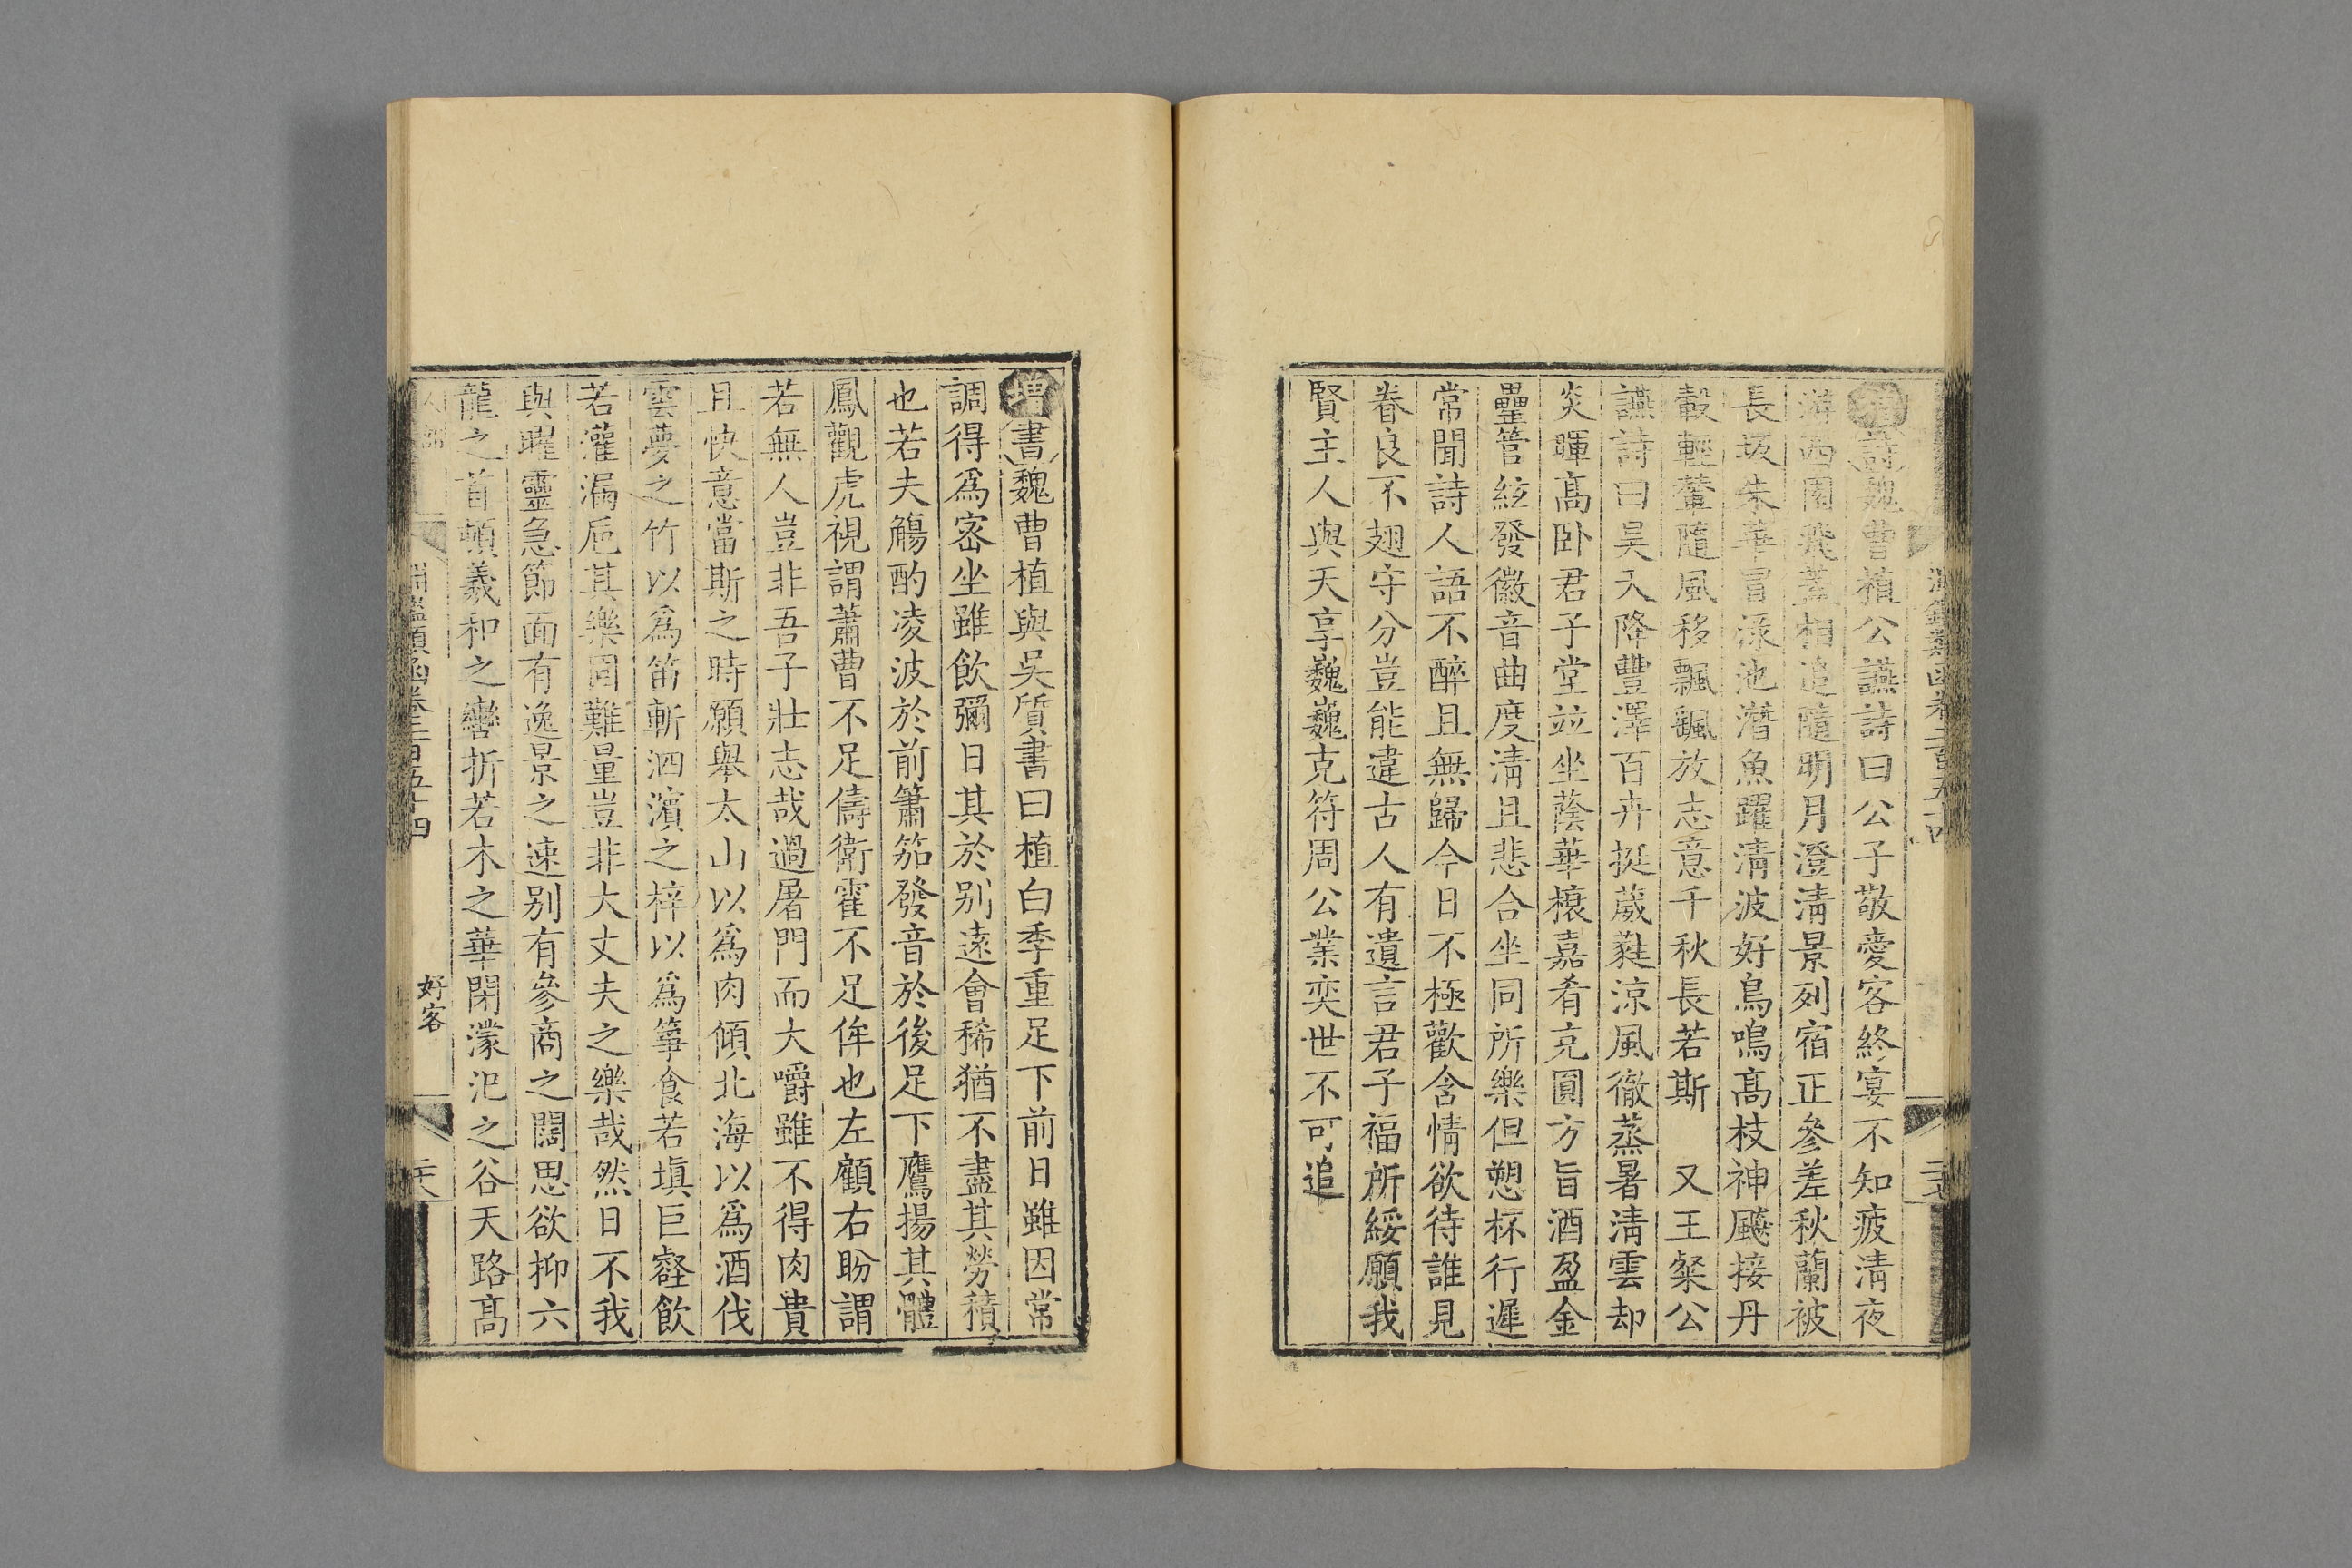 詩魏曹植公讌詩曰公子敬愛客終宴不知疲清夜
遊西園飛蓋相追隨明月澄清景列宿正參差秋蘭被
長坂朱華冒淥池潛魚躍清波好鳥鳴高枝神飈接丹
轂輕輦隨風移飄颻放志意千秋長若斯　又王粲公
讌詩曰昊天降豐澤百卉挺葳蕤涼風徹蒸暑清雲却
炎暉高卧君子堂竝坐蔭華榱嘉肴充圓方旨酒盈金
罍管絃發徽音曲度清且悲合坐同所樂但愬杯行遲
常聞詩人語不醉且無歸今日不極歡含情欲待誰見
眷良不翅守分豈能違古人有遺言君子福所綏願我
賢主人與天享巍巍克符周公業奕世不可追
增書魏曹植與吳質書曰植白季重足下前日雖因常
調得爲密坐雖飲彌日其於别遠會稀猶不盡其勞積
也若夫觴酌凌波於前簫笳發音於後足下鷹揚其體
鳳觀虎視謂蕭曹不足儔衛霍不足侔也左顧右盼謂
若無人豈非吾子壯志哉過屠門而大嚼雖不得肉貴
且快意當斯之時願舉太山以爲肉傾北海以爲酒伐
雲夢之竹以爲笛斬泗濱之梓以爲箏食若塡巨壑飲
若灌漏巵其樂固難量豈非大丈夫之樂哉然日不我
與曜靈急節面有逸景之速别有參商之闊思欲抑六
龍之首頓羲和之轡折若木之華閉濛汜之谷天路高
淵鑑類函卷三百五十四
好客
二十八